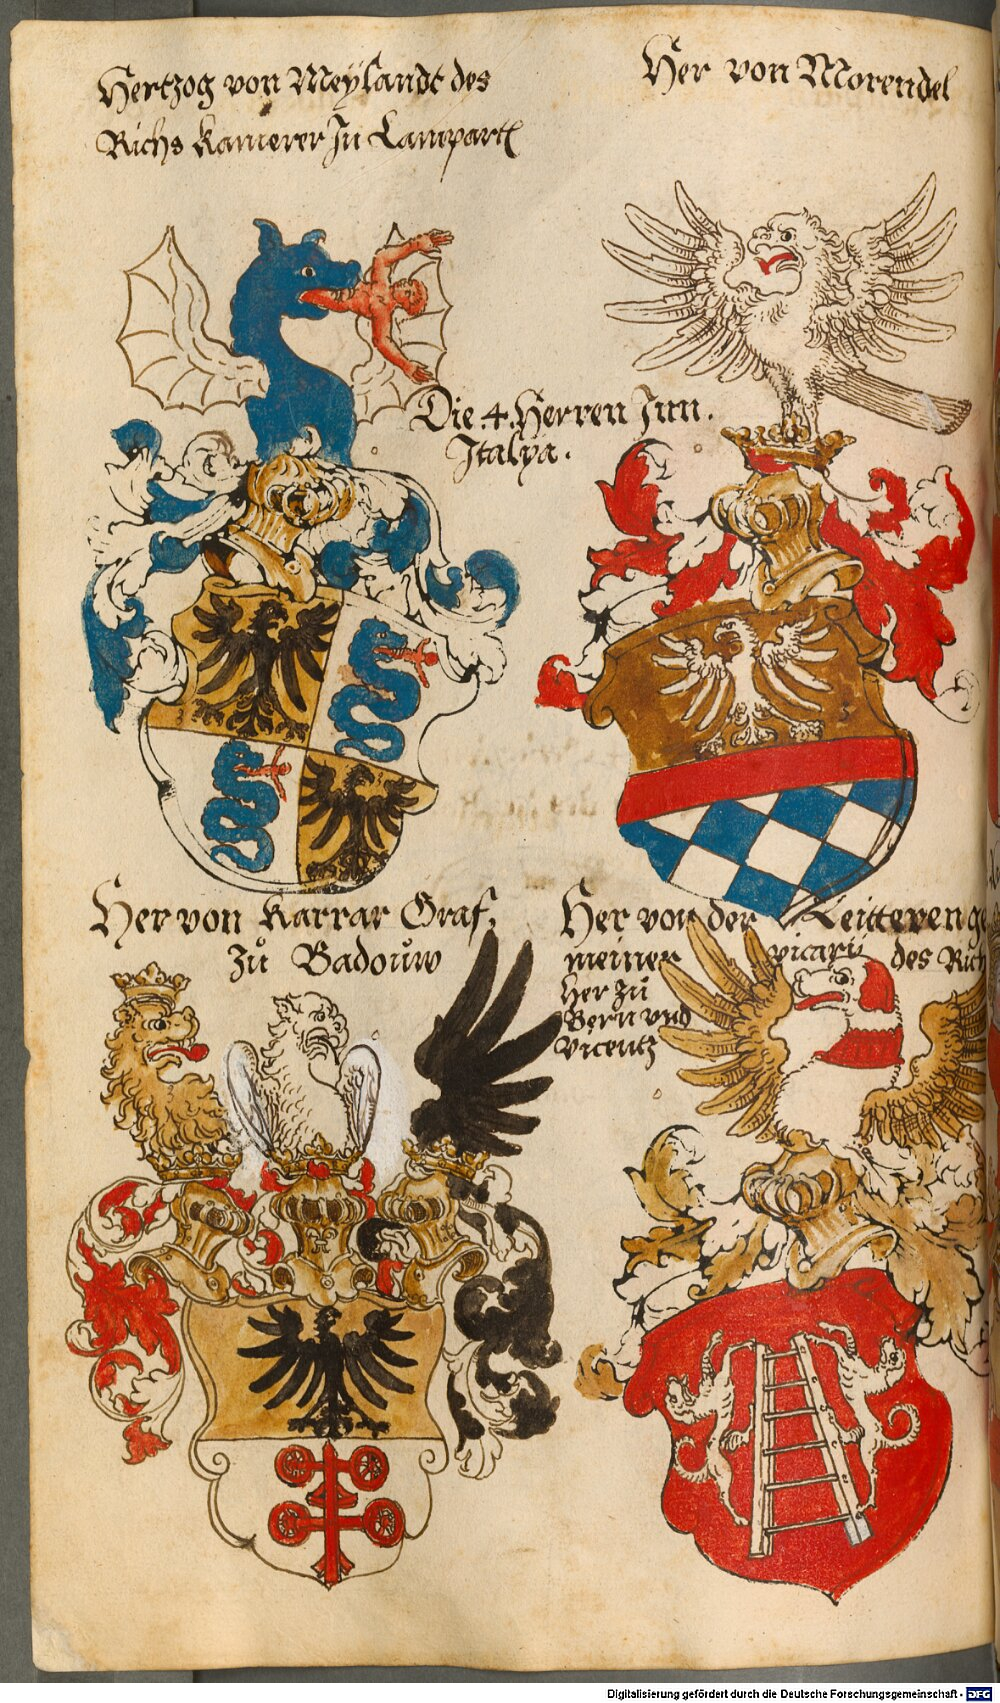 Hertzog von Meylandt des
Richs Kamerer Jn Lampart
Her von Morendel
Die 4 Herren Jnn.
Jtalya.
Her von Karrar Graf,
Zů Badoůw
Her von der Leitteren ge
meiner vicary des Rich
Her Zů
Bern vnd
Vicentz
Digitalisierung gefördert durch die Deutsche Forschungsgemeinschaft - DFG